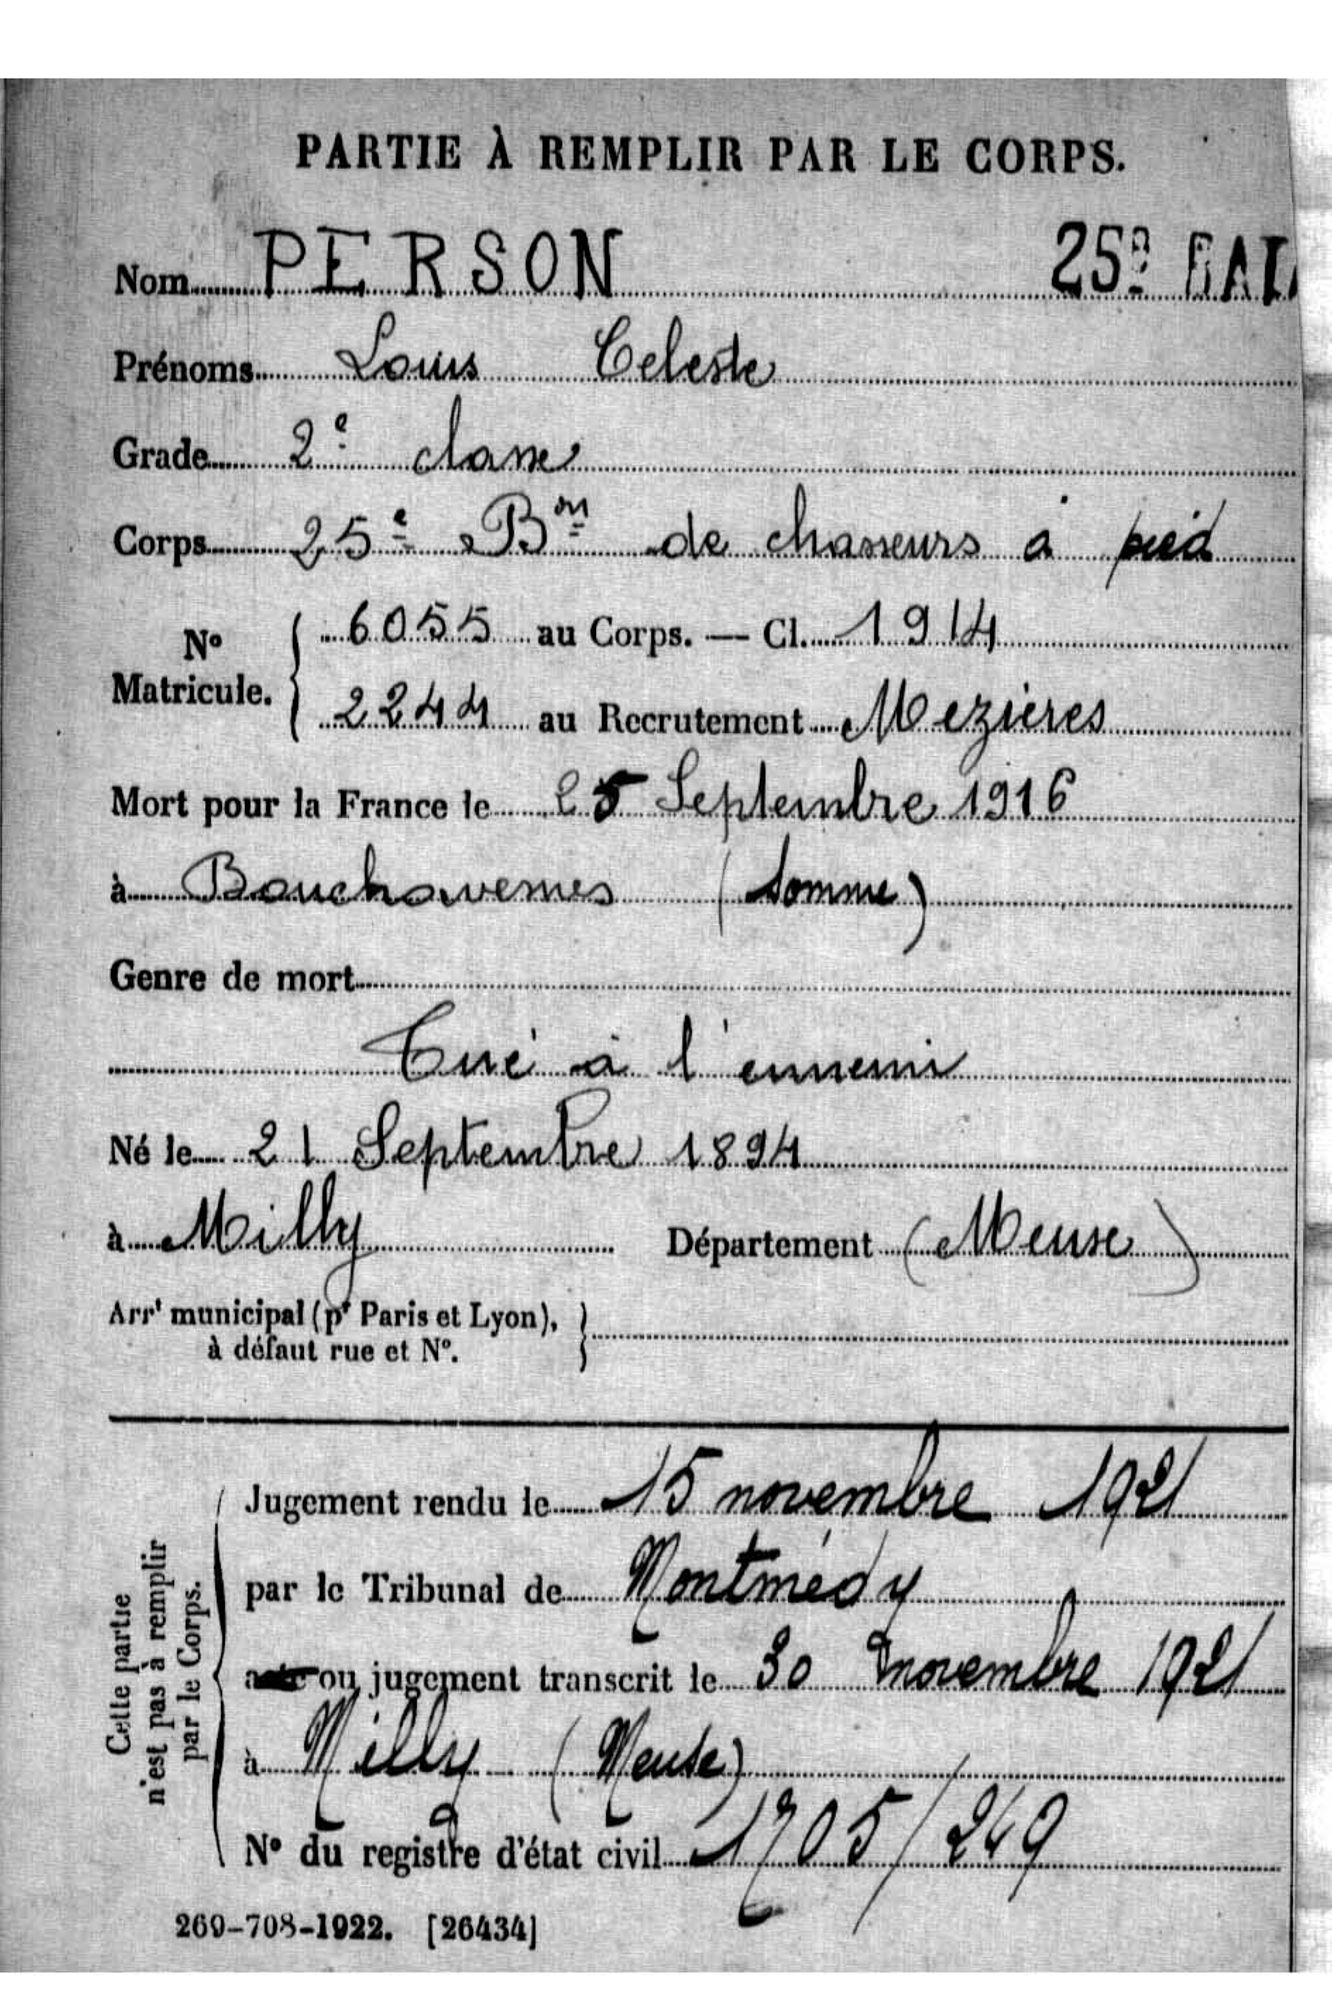 PARTIE À REMPLIR PAR LE CORPS.
Nom PERSON 25e BAT
Prénoms Louis Celeste
Grade 2e classe
Corps 25e Bon de chasseurs à pied
No Matricule. 6055 au Corps. — Cl. 1914
2244 au Recrutement Mezières
Mort pour la France le 25 Septembre 1916
à Bouchavesnes (Somme)
Genre de mort
Tué à l'ennemi
Né le 21 Septembre 1894
à Milly Département (Meuse)
Arrt municipal (pr Paris et Lyon),
à défaut rue et No.
Cette partie
n'est pas à remplir
par le Corps.
Jugement rendu le 15 novembre 1921
par le Tribunal de Montmédy
acte ou jugement transcrit le 30 novembre 1921
à Milly (Meuse)
No du registre d'état civil 1705/249
269-708-1922. [26434]